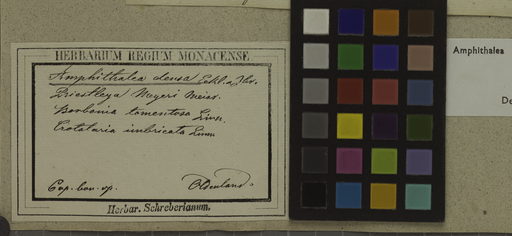 HERBARIUM REGIUM MONACENSE
Amphithalea densa Eckl. & Zhr.
Priestleya Meyeri Meisn.
Borbonia tomentosa Linn.
Crotalaria imbricata Linn.
Cap. bon. sp. Oldenland.
Herbar. Schreberianum.
Amphithalea
De